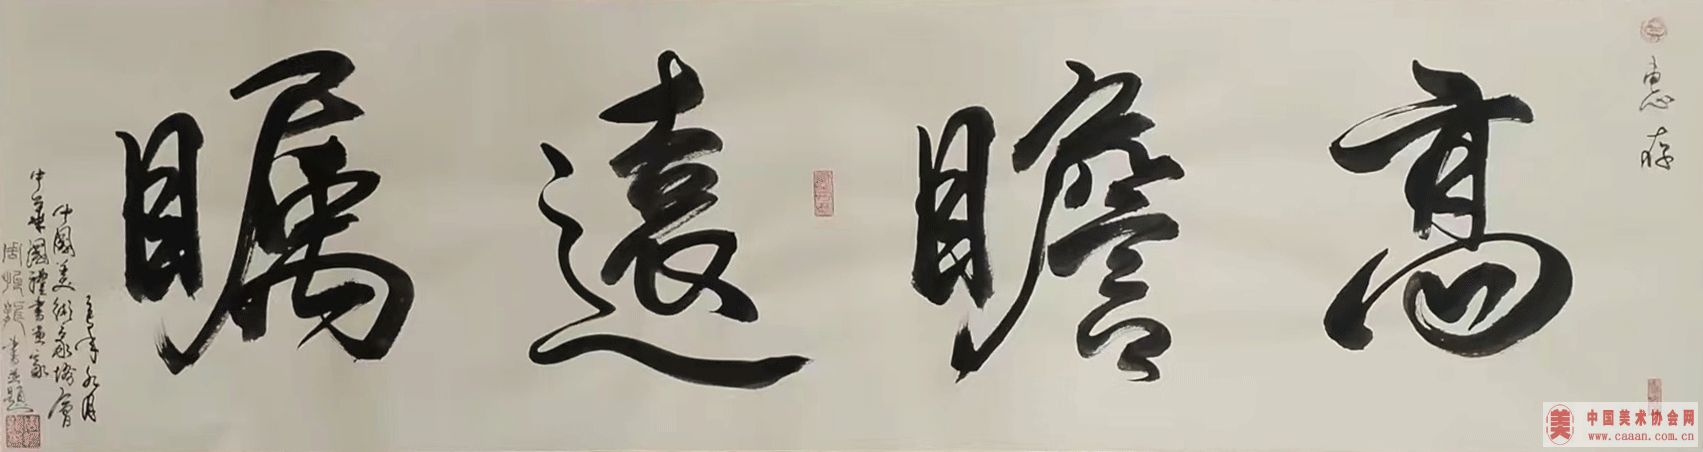 惠存
高瞻遠瞩
年九月
中國美術家協會
中華國禮書画家
周 龍書并題
中国美术协会网
www.caaan.com.cn